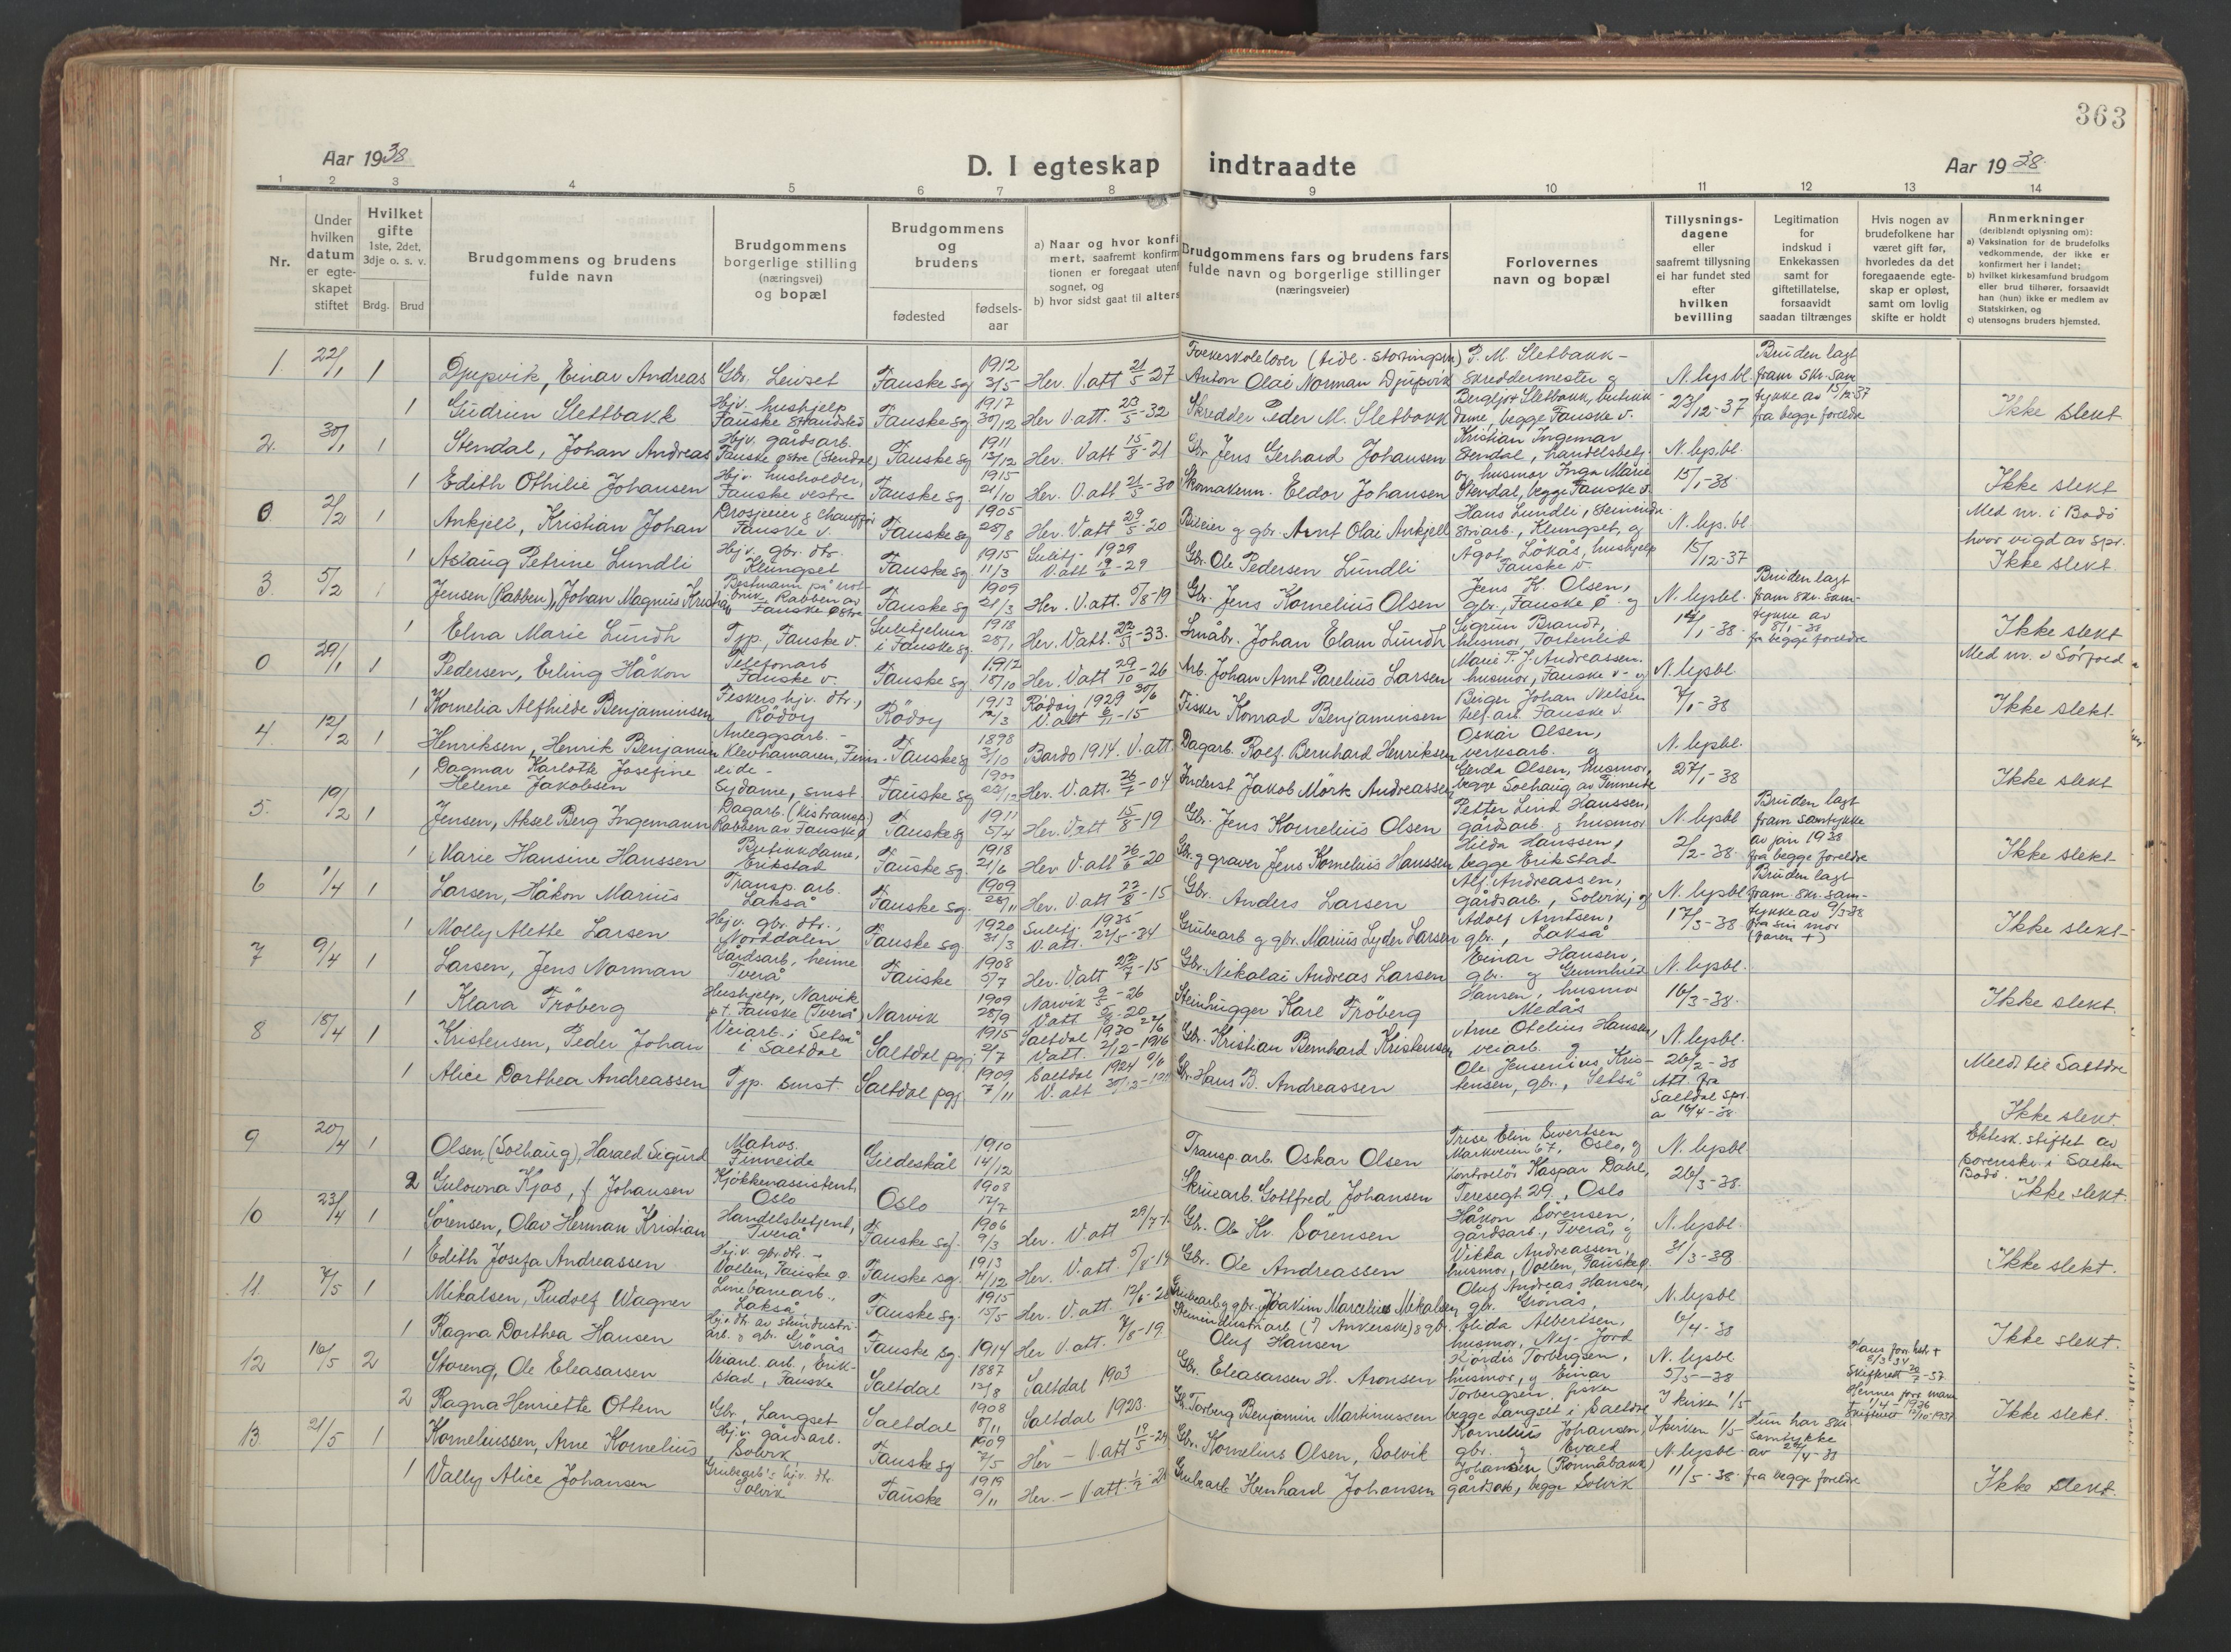 363
Aar 1938
D. I egteskap indtraadte
Aar 1938.
1 2 3 4 5 6 7 8 9 10 11 12 13 14
Nr.
Under hvilken datum er egteskapet stiftet
Hvilket gifte 1ste, 2det, 3dje o. s. v.
Brdg. Brud
Brudgommens og brudens fulde navn
Brudgommens borgerlige stilling (næringsvei) og bopæl
Brudgommens og brudens
fødested
fødsels-aar
a) Naar og hvor konfimert, saafremt konfirmtionen er foregaat utenf sognet, og
b) hvor sidst gaat til alters
Brudgommens fars og brudens fars fulde navn og borgerlige stillinger (næringsveier)
Forlovernes navn og bopæl
Tillysningsdagene eller saafremt tillysning ei har fundet sted efter hvilken bevilling
Legitimation for indskud i Enkekassen samt for giftetillatelse, forsaavidt saadan tiltrænges
Hvis nogen av brudefolkene har været gift før, hvorledes da det foregaaende egteskap er opløst, samt om lovlig skifte er holdt
Anmerkninger (deriblandt oplysning om):
a) Vaksination for de brudefolks vedkommende, der ikke er konfirmert her i landet;
b) hvilket kirkesamfund brudgom eller brud tilhører, forsaavidt han (hun) ikke er medlem av Statskirken, og
c) utensogns bruders hjemsted.
1. 22/1 1 Djupvik, Einar Andreas Gbr. Leivset Fauske sg 1912 3/5 Her. V.att 21/5-27 Folkeskolelærer (tidl. stortingsm) Anton Olai Norman Djupvik P. M. Sletbakk - skreddermester og N. lysbl. Bruden lagt fram skr. sam-
1 Gudrun Slettbakk Hjv. hushjelp Fauske strandsted Fauske sg. 1917 30/12 Her V.att. 23/5-32 Skredder Peder M. Sletbakk Bergljot Sletbakk, butikkdame, begge Fauske v. 23/12-37 tykke av 15/12-37 fra begge foreldre Ikke slekt
2. 30/1 1 Stendal, Johan Andreas Hjv. gårdsarb. Fauske østre (Stendal) Fauske sg 1911 13/12 Her. V.att 15/8-21 Gbr Jens Gerhard Johansen Kristian Ingemar Stendal, handelsbetj. N. lysbl.
1 Edith Othilie Johansen Hjv. husholder, Fauske vestre Fauske sg. 1915 21/10 Her. V.att 21/5-30 Skomakerm. Eldor Johansen og husmor Inga Marie Stendal, begge Fauske v. 15/1-38 Ikke slekt
0. 2/2 1 Ankjell, Kristian Johan Drosjeeier & chauffør Fauske v. Fauske sg 1905 28/8 Her. V.att 29/5-20 Bileier g gbr. Arnt Olai Ankjell Hans Lundli, steinindustriarb., Klungset, og N. lys. bl. Med nr. i Bodö
1 Aslaug Petrine Lundli Hjv. gbr. dtr. Klungset Fauske sg 1915 11/3 Sulitj. 1929 V.att 19/6-29 Gbr. Ole Pedersen Lundli Ågot Løkås, hushjelp Fauske v. 15/12-37 hvor vigd av spr. Ikke slekt
3. 5/2 1 Jensen (Rabben), Johan Magnus Kristian Rabben av Fauske østre Fauske sg 1909 21/3 Her. V.att. 5/8-19 Gbr. Jens Kornelius Olsen Jens K. Olsen, gbr., Fauske ø. og N. lysbl. Bruden lagt fram skr. sam-
1 Elna Marie Lundh Tjp., Fauske v. Sulitjelma i Fauske sg. 1918 28/1 Her. V.att. -33. Småbr. Johan Elam Lundh Sigrun Brandt, husmor, 14/1-38. tykke av 8/1-38 fr begge foreldre Ikke slekt
0 29/1 1 Pedersen, Erling Håkon Telefonarb Fauske v. Fauske sg 1912 18/10 Her. V.att 29/10-26 Arb. Johan Arnt Parelius Larsen Marie P. J. Andreassen. husmor, Fauske v. og N. lysbl. Med nr. i Sørfold
1 Kornelia Alfhilde Benjaminsen Fiskers hjv. dtr., Rödöy Rödöy 1913 12/3 Rödöy 1929 30/6 V.att 6/11-15 Fisker Konrad Benjaminsen Birger Johan Nelsen telf.arb. Fauske v. 7/1-38 Ikke slekt
4. 12/2 1 Henriksen, Henrik Benjamin Anleggsarb. - Klevhamaren, Finneide - Fauske sg 1898 3/10 Bardo 1914. V.att. Dagarb. Rolf Bernhard Henriksen Oskar Olsen, verksarb. og N. lysbl.
1 Dagmar Karlotte Josefine Helene Jakobsen Sydame, smst. Fauske sg 1900 22/12 Her. V.att. 26/7-04 Inderst Jakob Mörk Andreassen Gerda Olsen, husmor, begge Solhaug av Finneide 27/1-38 Ikke slekt
5. 19/2 1 Jensen, Aksel Berg Ingemann Dagarb. (kistransp.) Rabben av Fauske ø Fauske sg 1911 5/4 Her. V.att 15/8-19 Gbr. Jens Kornelius Olsen Petter Lind Hanssen, gårdsarb. g husmor N. lysbl Bruden lagt fram samtykke
1 Marie Hansine Hanssen Butikkdame, Erikstad Fauske sg. 1918 21/6 Her V.att 26/6-20 Gbr. g graver Jens Kornelius Hanssen Hilda Hanssen, begge Erikstad 2/2-38. av jan 1938 fra begge foreldre Ikke slekt
6 1/4 1 Larsen, Håkon Marius Transp. arb. Lakså Fauske sg. 1909 28/11 Her. V.att 22/8-15 Gbr. Anders Larsen Alf. Andreassen, gårdsarb., Solvik, og N. lysbl Bruden lagt fram skr. sam-
1 Molly Alette Larsen Hjv. gbr. dtr., Norddalen Fauske sg. 1920 31/3 Sulitj. 1935 V.att. 22/5-34 Grubearb g gbr. Marius Lyder Larsen Adolf Arntsen, gbr., Lakså 17/3-38 tykke av 9/3-38 fra sin mor (faren +) Ikke slekt
7 9/4 1 Larsen, Jens Norman Gårdsarb, heime Tverå Fauske 1908 5/7 Her. V.att 22/7-15 Gbr. Nikolai Andreas Larsen Einar Hansen, gbr. g Gunnhild N. lysbl.
1 Klara Fröberg Hushjelp, Narvik p.t. Fauske (Tverå) Narvik 1909 28/9 Narvik 9/5-26 V.att -20 Steinhugger Karl Fröberg Hansen, husmor Medås 16/3-38. Ikke slekt.
8 18/4 1 Kristensen, Peder Johan Veiarb. i Setså i Saltdal Saltdal pgj 1915 2/7 Saltdal 1930 22/6 V.att. 2/12-1916 Gbr. Kristian Bernhard Kristensen Arne Otelius Hansen veiarb. g N. lysbl.
1 Alice Dorthea Andreassen Tjp. smst. Saltdal pgj. 1909 7/11 Saltdal 1924 V.att Gbr. Hans B. Andreassen Ole Jensenius Kristensen, gbr., Setså 26/2-38 Att. fra Saltdal spr. a 16/4-38. Meldt til Saltdal Ikke slekt.
9 20/4 1 Olsen, (Solhaug), Harald Sigurd Matros. Finneide Gildeskål 1910 14/12 Transp. arb. Oskar Olsen Elin Sivertsen Markveien 67, Oslo, og N. lysbl Ektesk. stiftet av sorenskr. i Salten Bodö.
2 Gulowna Kjos, f Johansen Kjøkkenassistent, Oslo Oslo 1908 12/7 Skruearb. Gottfred Johansen kontrollör Kaspar Dahl, Teresegt 29, Oslo 26/3-38. Ikke slekt.
10 23/4 1 Sörensen, Olav Herman Kristian Handelsbetjent, Tverå Fauske sg. 1906 9/3 Her. V.att 29/7- Gbr. Ole Kr. Sörensen Håkon Sörensen, gårdsarb., Tverå, og N. lysbl.
1 Edith Josefa Andreassen Hjv. gbr. dtr. - Vollen, Fauske ø. Fauske sg. 1913 4/12 Her. V.att. 5/8-19 Gbr. Ole Andreassen Vikka Andreassen, husmor, Vollen, Fauske ø. 31/3-38 Ikke slekt.
11. 7/5 1 Mikalsen, Rudolf Wagner Linebanearb., Lakså Fauske sg. 1915 15/5 Her. V.att. 12/6-2 Grubearb g gbr. Joakim Marcelius Mikalsen Oluf Andreas Hansen, gbr. Grönås, N. lysbl
1 Ragna Dorthea Hansen Hjv. dtr. av steindustriarb. g gbr. Grönås Fauske sg. 1914 Her V.att. 7/8-19. Steinindustriarb (i Ankerske) g gbr. Oluf Hansen Elida Albertsen, husmor, Ny-Jord 6/4-38 Ikke slekt.
12 16/5 2 Storeng, Ole Eleasarsen Veianl. arb., Erikstad, Fauske Saltdal 1887 12/8 Saltdal 1903 Gbr. Eleasarsen H. Aronsen Hjördis Torbergsen, husmor, g Einar N. lysbl 5/5-38 Hans forr. hstr + 8/3 34
2 Ragna Henriette Ottem Gbr., Langset Saltdal 1908 8/11 Saltdal 1923. Gbr. Torberg Benjamin Martinussen Torbergsen, fisker begge Langset i Saltdal I kirken 1/5 Hennes forr. mann 1/4-1936 Ikke slekt.
13. 21/5 1 Korneliussen, Arne Kornelius Hjv. gårdsarb. Solvik, Fauske sg 1909 7/5 Her - V.att 19/5-24 Gbr. Kornelius Olsen, Solvik Kornelius Johansen, gbr. g Evald I kirken 1/5 N. lysbl. Hun har skr. samtykke av 29/4-38
1 Vally Alice Johansen Grubearb's hjv. dtr. Solvik Fauske 1919 9/11 Her. - V.att. Grubearb Henhard Johansen Johansen (Rønnåbakk) gårdsarb, begge Solvik 11/5-38. fra begge foreldre Ikke slekt.